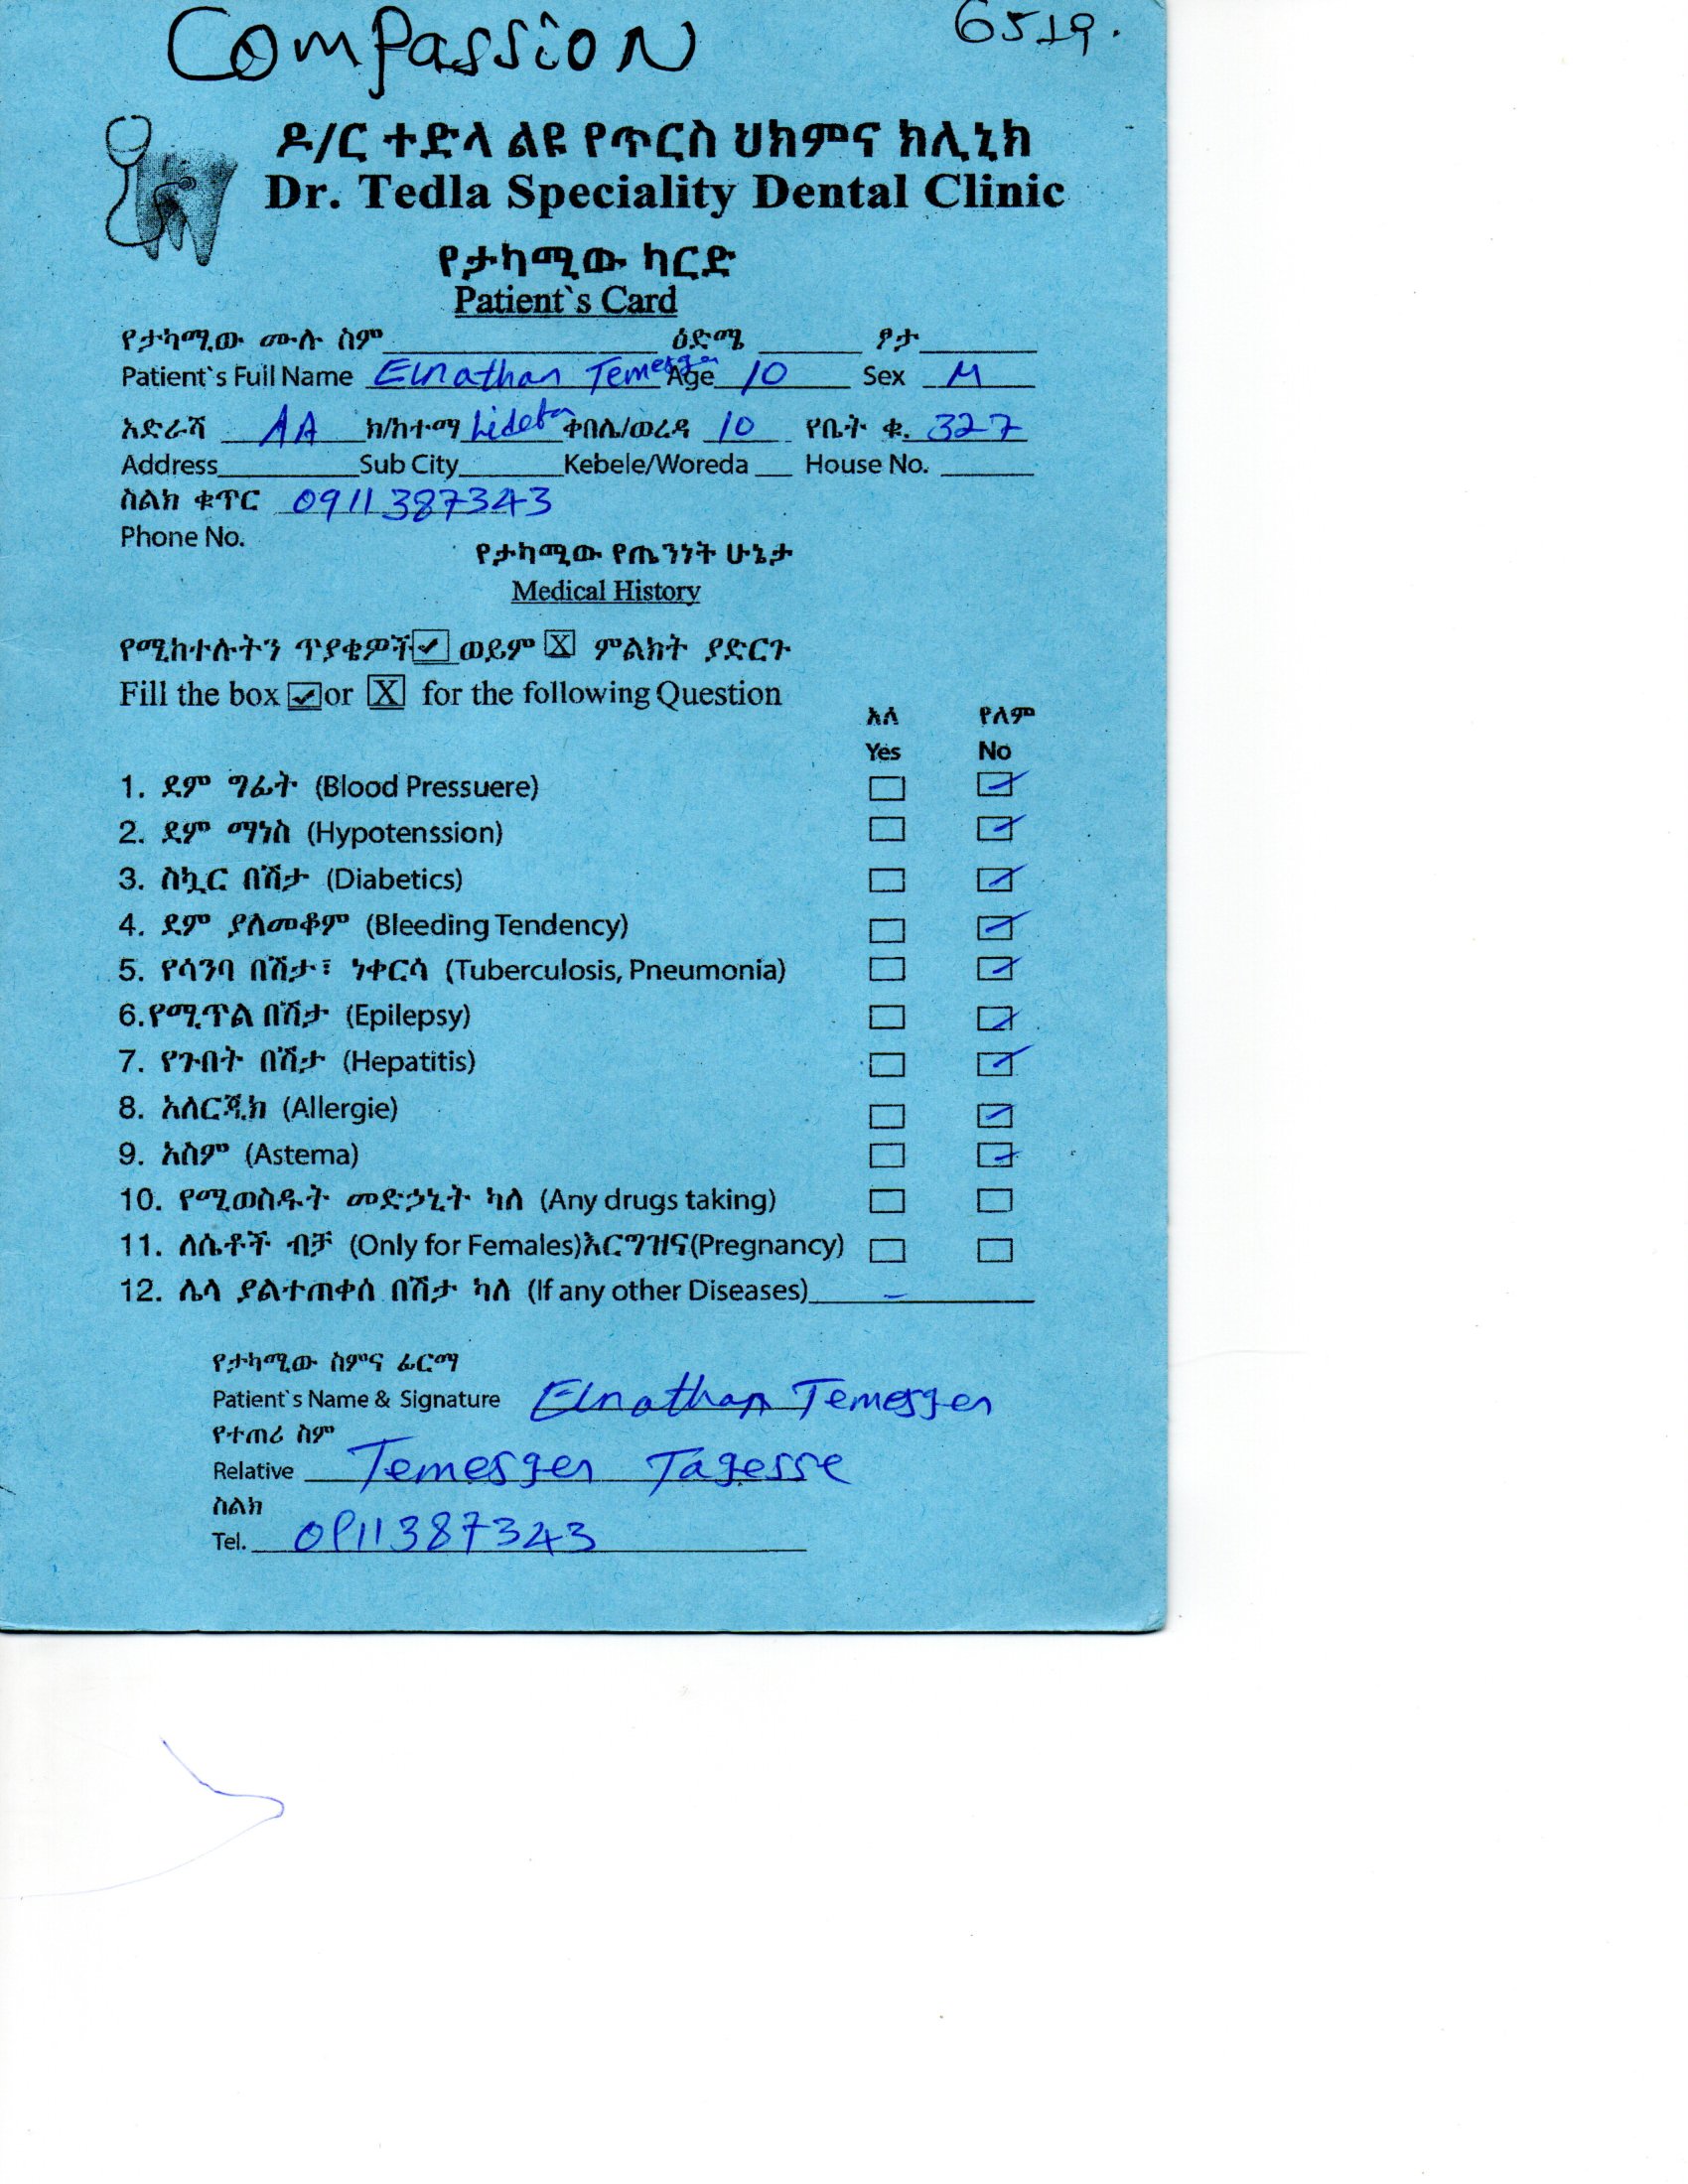 Compassion 6519.
ዶ/ር ተድላ ልዩ የጥርስ ህክምና ክሊኒክ
Dr. Tedla Speciality Dental Clinic
የታካሚው ካርድ
Patient`s Card
የታካሚው ሙሉ ስም ዕድሜ ፆታ
Patient`s Full Name Elnathan Temesgen Age 10 Sex M
አድራሻ AA ክ/ከተማ Lideta ቀበሌ/ወረዳ 10 የቤት ቁ. 327
Address Sub City Kebele/Woreda House No.
ስልክ ቁጥር 0911387343
Phone No.
የታካሚው የጤንነት ሁኔታ
Medical History
የሚከተሉትን ጥያቄዎች ☑ ወይም ☒ ምልክት ያድርጉ
Fill the box ☑ or ☒ for the following Question
አለ የለም
Yes No
1. ደም ግፊት (Blood Pressuere) ☐ ☑
2. ደም ማነስ (Hypotenssion) ☐ ☑
3. ስኳር በሽታ (Diabetics) ☐ ☑
4. ደም ያለመቆም (Bleeding Tendency) ☐ ☑
5. የሳንባ በሽታ፣ ነቀርሳ (Tuberculosis, Pneumonia) ☐ ☑
6.የሚጥል በሽታ (Epilepsy) ☐ ☑
7. የጉበት በሽታ (Hepatitis) ☐ ☑
8. አለርጂክ (Allergie) ☐ ☑
9. አስም (Astema) ☐ ☑
10. የሚወስዱት መድኃኒት ካለ (Any drugs taking) ☐ ☐
11. ለሴቶች ብቻ (Only for Females)እርግዝና(Pregnancy) ☐ ☐
12. ሌላ ያልተጠቀሰ በሽታ ካለ (If any other Diseases) –
የታካሚው ስምና ፊርማ
Patient`s Name & Signature Elnathan Temesgen
የተጠሪ ስም
Relative Temesgen Tagesse
ስልክ
Tel. 0911387343